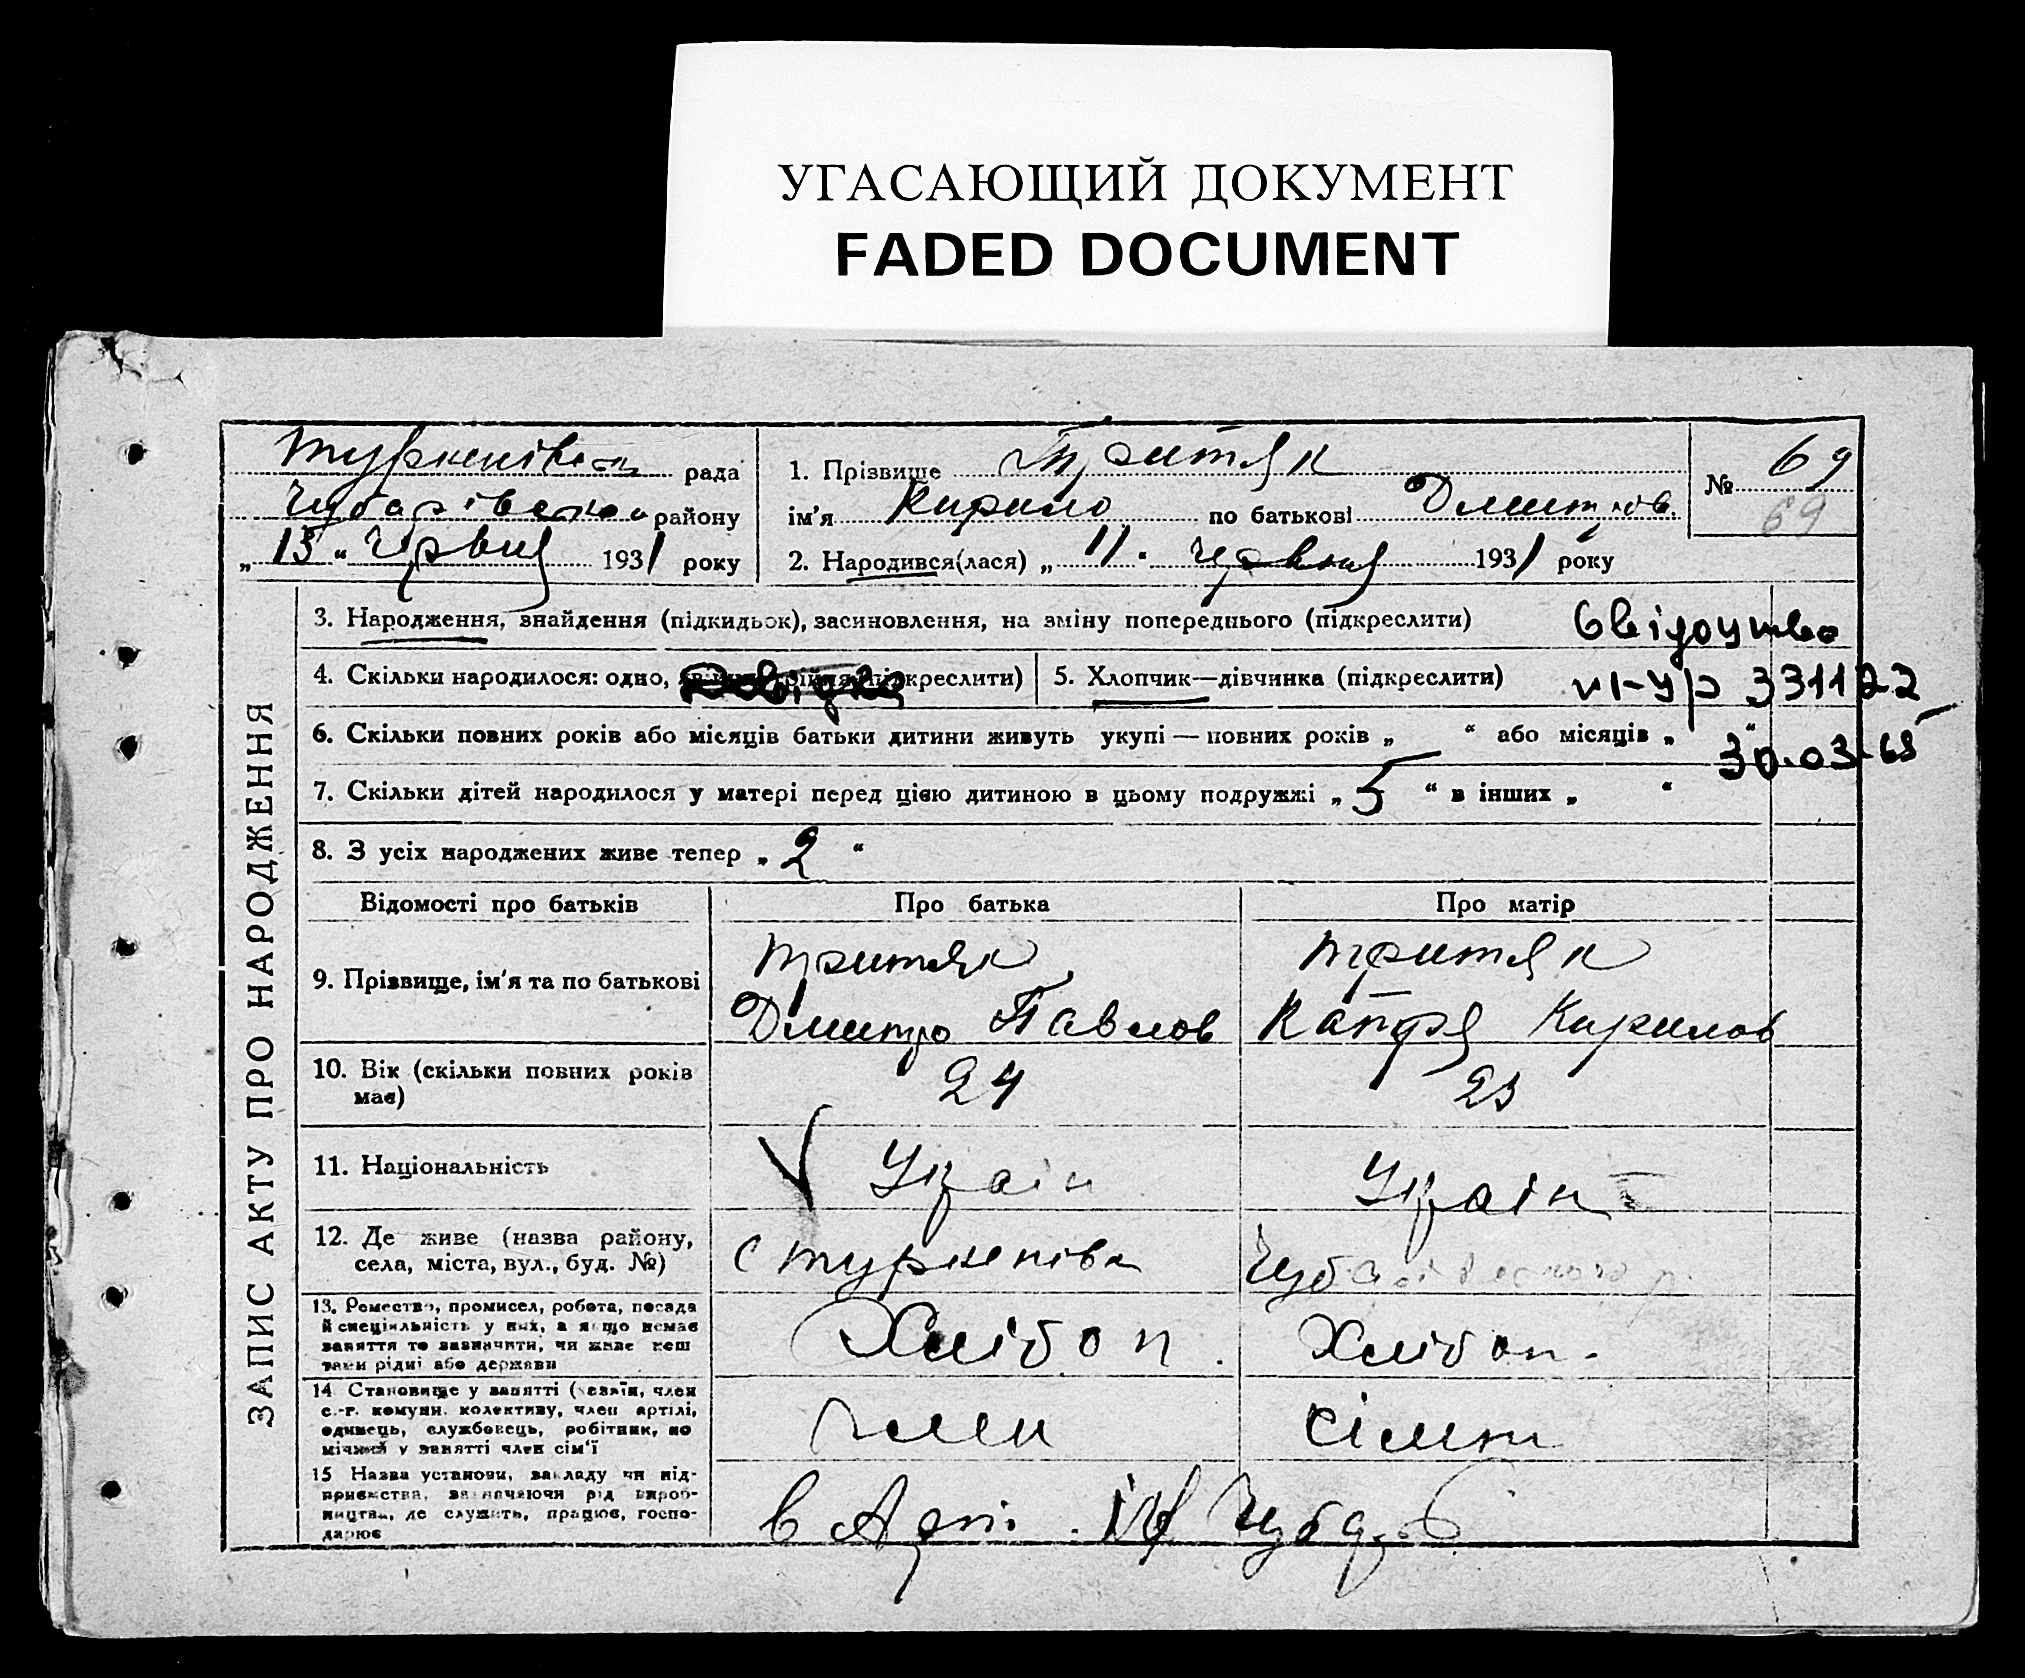 УГАСАЮЩИЙ ДОКУМЕНТ
FADED DOCUMENT
ЗАПИС АКТУ ПРО НАРОДЖЕННЯ
Туркенівск рада
Чубарівського району
„ 13 “ Червня 1931 року
1. Прізвище Тритяк
ім'я Кирило по батькові Дмитров.
2. Народився(лася) „ 11 “ Червня 1931 року
№ 69
69
3. Народження, знайдення (підкидьок), засиновлення, на зміну попереднього (підкреслити)
Свідоцтво
4. Скільки народилося: одно, підкреслити)
5. Хлопчик—дівчинка (підкреслити)
УР 331122
6. Скільки повних років або місяців батьки дитини живуть укупі — повних років „ “ або місяців „ “
30.03.65
7. Скільки дітей народилося у матері перед цією дитиною в цьому подружжі „ 5 “ в інших „ “
8. З усіх народжених живе тепер „ 2 “
Відомості про батьків Про батька Про матір
9. Прізвище, ім'я та по батькові
Тритяк Тритяк
Дмитро Павлов Катря Кирилов
10. Вік (скільки повних років має)
24 23
11. Національність
Украін Украін
12. Де живе (назва району,
села, міста, вул., буд. №)
с Туркенівка Чубарівського р.
13. Ремество, промисел, робота, посада
й спеціяльність у них, а якщо немає
заняття то зазначити, чи живе кеш
таки рідні або держави
Хлібоп. Хлібоп.
14. Становище у занятті (хазяїн, член
с.-г. комуни, колективу, член артілі,
одинець, службовець, робітник, по
мічний у занятті член сім'ї
член сімт
15 Назва установи, закладу чи під-
приємства, зазначаючи рід вироб-
ництва, де служить, працює, госпо-
дарює
в Арті. Чубар